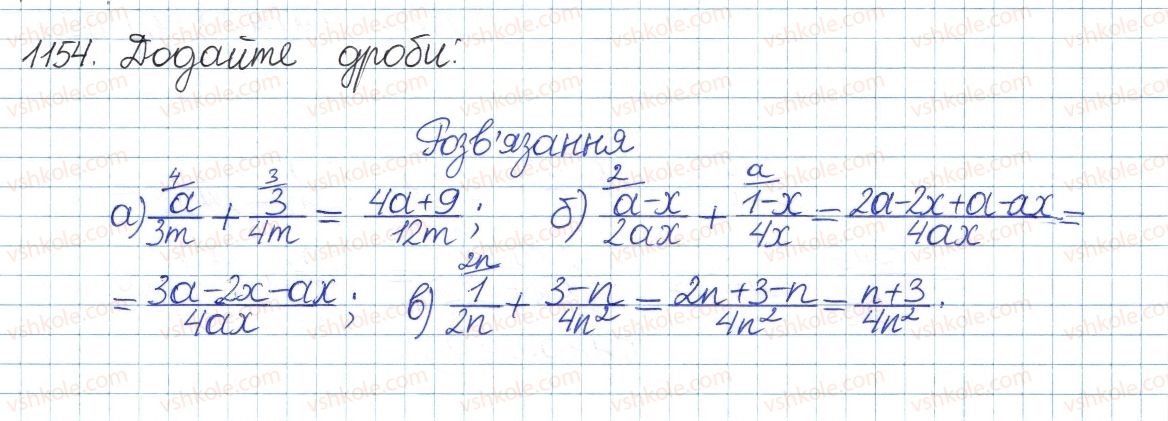 1154. Додайте дроби:
Розв'язання
а) ⁴/a/3m + ³/3/4m = (4a+9)/12m ; б) ²/(a-x)/2ax + ᵃ/(1-x)/4x = (2a-2x+a-ax)/4ax =
= (3a-2x-ax)/4ax ; в) ²ⁿ/1/2n + (3-n)/4n² = (2n+3-n)/4n² = (n+3)/4n² .